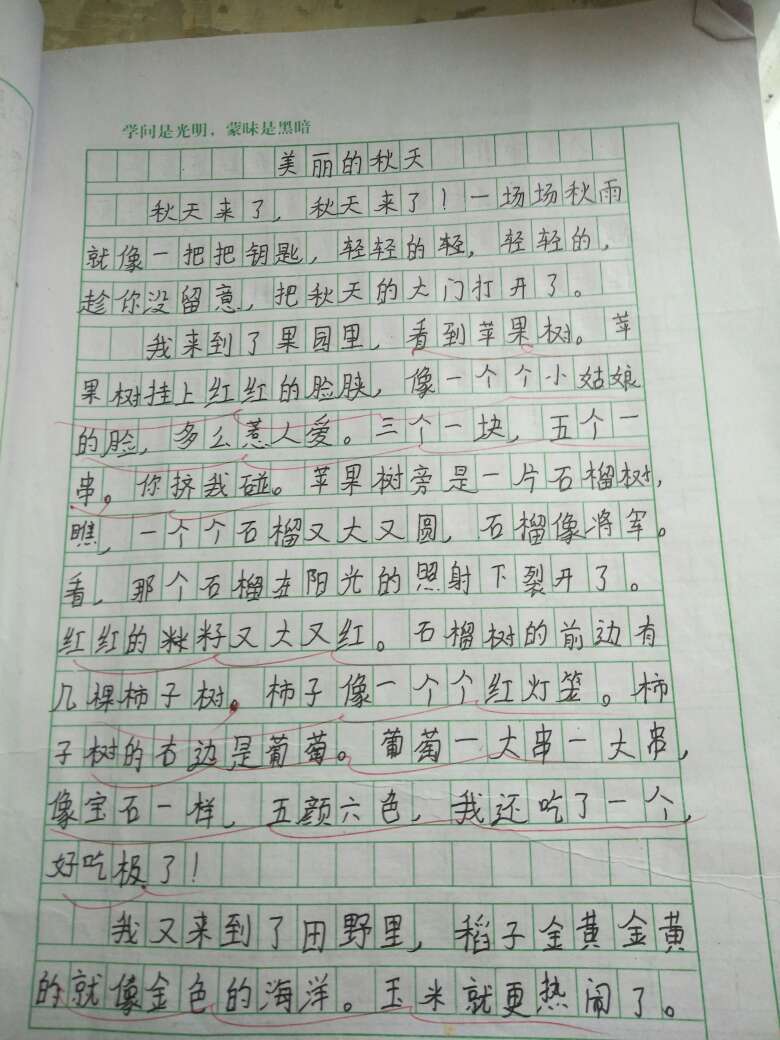 学问是光明，蒙昧是黑暗
美丽的秋天
秋天来了，秋天来了！一场场秋雨
就像一把把钥匙，轻轻的轻，轻轻的，
趁你没留意，把秋天的大门打开了。
我来到了果园里，看到苹果树。苹
果树挂上红红的脸胦，像一个个小姑娘
的脸，多么惹人爱。三个一块，五个一
串。你挤我碰。苹果树旁是一片石榴树，
瞧，一个个石榴又大又圆，石榴像将军。
看，那个石榴在阳光的照射下裂开了。
红红的籽又大又红。石榴树的前边有
几棵柿子树。柿子像一个个红灯笼。柿
子树的右边是葡萄。葡萄一大串一大串，
像宝石一样，五颜六色，我还吃了一个，
好吃极了！
我又来到了田野里，稻子金黄金黄
的就像金色的海洋。玉米就更热闹了。